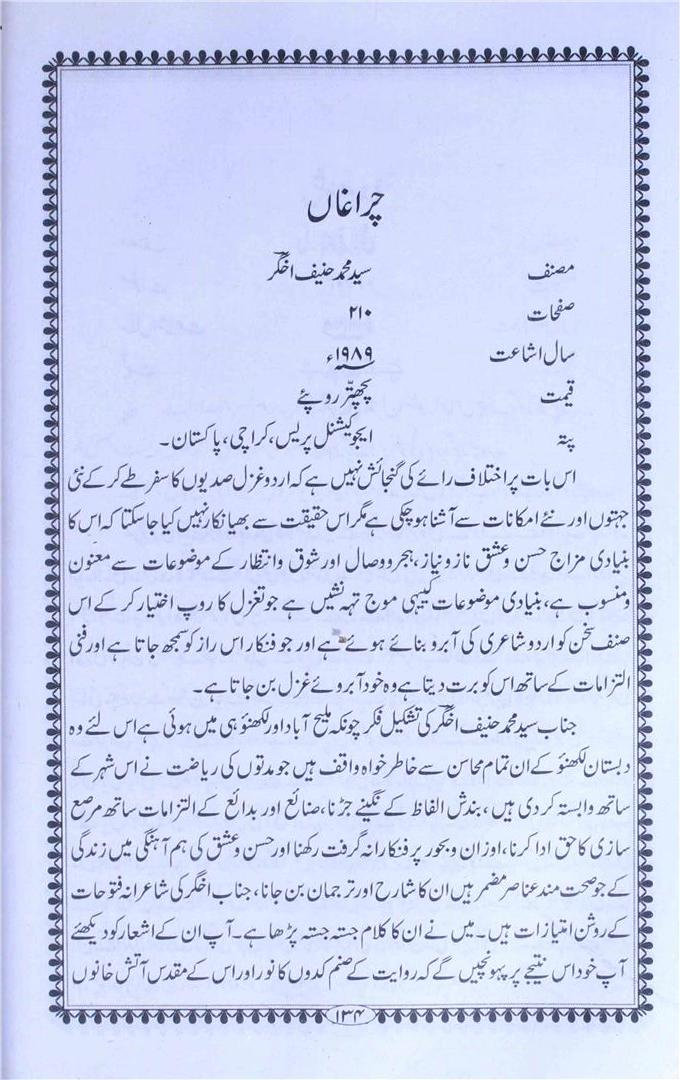 چراغاں
مصنف سید محمد حنیف اخگر
صفحات ۲۱۰
سال اشاعت ۱۹۸۹ء
قیمت پچھتّر روپئے
پتہ ایجوکیشنل پریس، کراچی، پاکستان۔
اس بات پر اختلاف رائے کی گنجائش نہیں ہے کہ اردو غزل صدیوں کا سفر طے کر کے نئی
جہتوں اور نئے امکانات سے آشنا ہو چکی ہے مگر اس حقیقت سے بھی انکار نہیں کیا جا سکتا کہ اس کا
بنیادی مزاج حسن و عشق ناز و نیاز، ہجر و وصال اور شوق و انتظار کے موضوعات سے معنون
و منسوب ہے، بنیادی موضوعات کی یہی موج تہہ نشیں ہے جو تغزل کا روپ اختیار کر کے اس
صنف سخن کو اردو شاعری کی آبرو بنائے ہوئے ہے اور جو فنکار اس راز کو سمجھ جاتا ہے اور فنی
التزامات کے ساتھ اس کو برت دیتا ہے وہ خود آبروئے غزل بن جاتا ہے۔
جناب سید محمد حنیف اخگر کی تشکیل فکر چونکہ ملیح آباد اور لکھنؤ ہی میں ہوئی ہے اس لئے وہ
دبستان لکھنؤ کے ان تمام محاسن سے خاطر خواہ واقف ہیں جو مدتوں کی ریاضت نے اس شہر کے
ساتھ وابستہ کر دی ہیں، بندش الفاظ کے نگینے جڑنا، صنائع اور بدائع کے التزامات ساتھ مرصع
سازی کا حق ادا کرنا، اوزان و بحور پر فنکارانہ گرفت رکھنا اور حسن و عشق کی ہم آہنگی میں زندگی
کے جو صحت مند عناصر مضمر ہیں ان کا شارح اور ترجمان بن جانا، جناب اخگر کی شاعرانہ فتوحات
کے روشن امتیازات ہیں۔ میں نے ان کا کلام جستہ جستہ پڑھا ہے۔ آپ ان کے اشعار کو دیکھئے
آپ خود اس نتیجے پر پہونچیں گے کہ روایت کے صنم کدوں کا نور اور اس کے مقدس آتش خانوں
۱۳۴